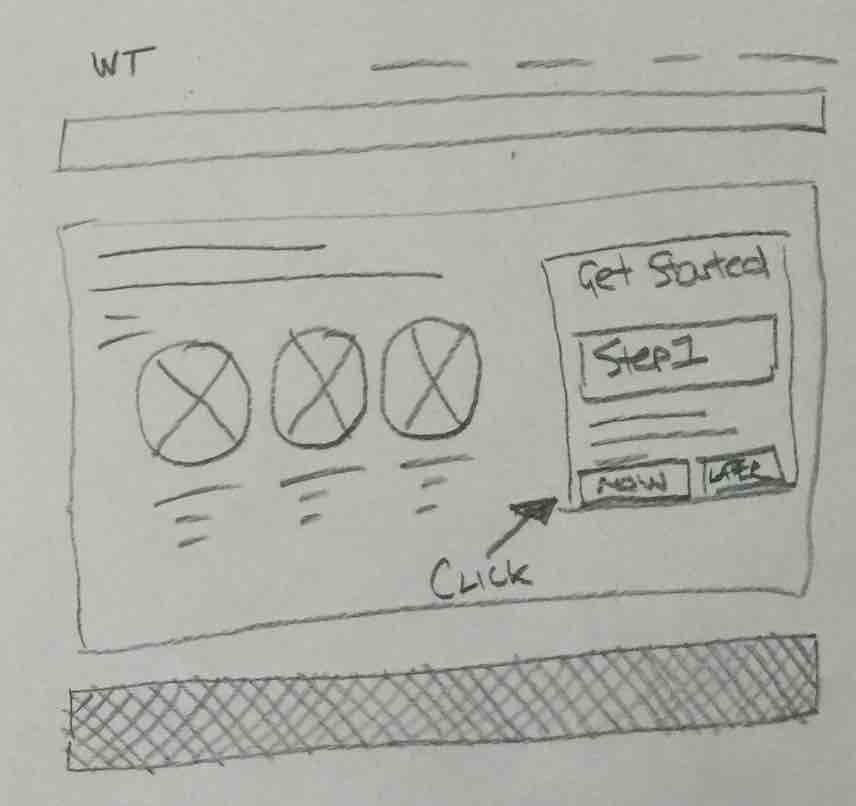 WT
Get Started
Step 1
NOW
LATER
CLICK